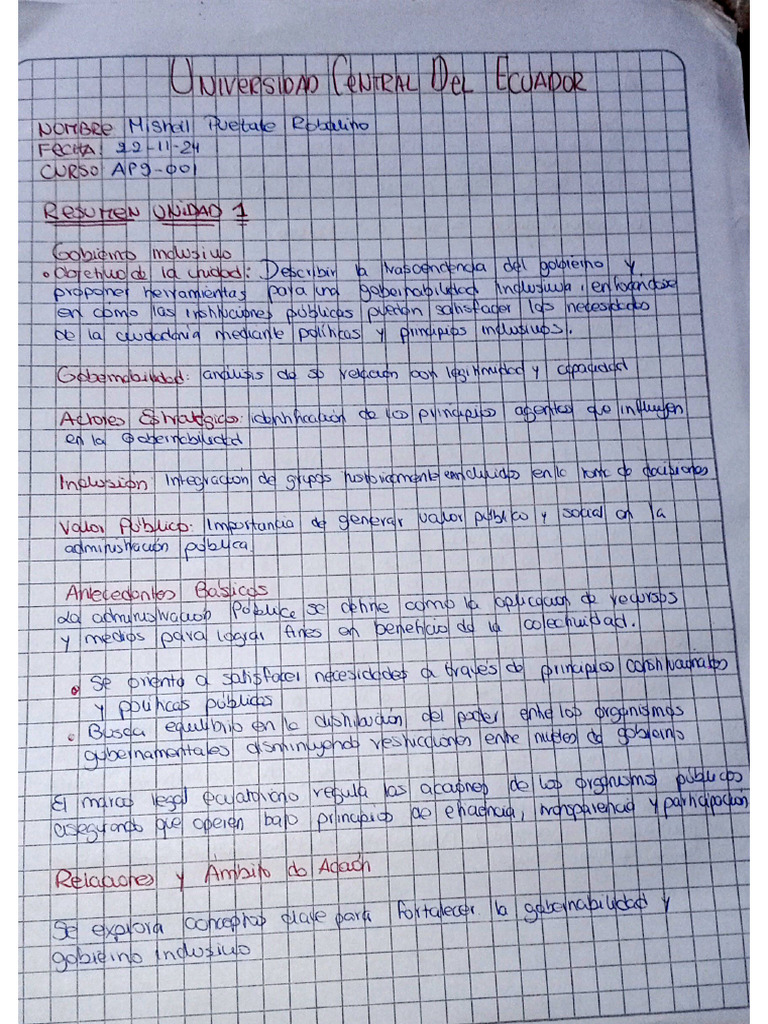 UNIVERSIDAD CENTRAL DEL ECUADOR
NOMBRE Mishell Puetate Robalino
FECHA: 22-11-24
CURSO AP9-001
RESUMEN UNIDAD 1
Gobierno inclusivo
• Objetivo de la unidad: Describir la trascendencia del gobierno y
proponer herramientas para una gobernabilidad inclusiva, enfocandose
en como las instituciones públicas puedan satisfacer las necesidades
de la ciudadania mediante políticas y principios inclusivos.
Gobernabilidad: análisis de su relación con legitimidad y capacidad
Actores Estratégicos: identificación de los principios agentes que influyen
en la Gobernabilidad
Inclusión: Integración de grupos historicamente excluidos en la toma de decisiones
Valor Público: Importancia de generar valor público y social en la
administración pública.
Antecedentes Basicos
La administración Pública se define como la aplicación de recursos
y medios para lograr fines en beneficio de la colectividad.
• Se orienta a satisfacer necesidades a través de principios constitucionales
y políticas públicas
• Busca equilibrio en la distribución del poder entre los organismos
gubernamentales disminuyendo restricciones entre niveles de gobierno
El marco legal ecuatoriano regula las acciones de los organismos públicos
asegurando que operen bajo principios de eficiencia, transparencia y participación
Relaciones y Ámbito de Acción
Se explora conceptos clave para fortalecer la gobernabilidad y
gobierno inclusivo